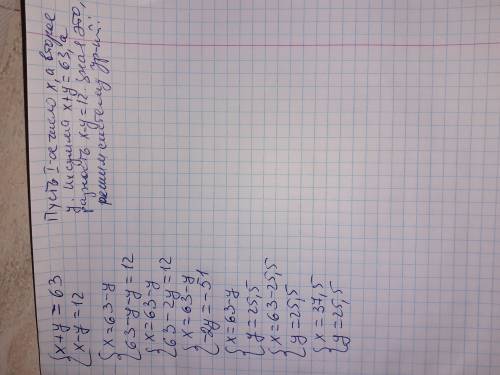 Пусть I-ое число x, а второе
y. Их сумма x+y=63, а
разность x-y=12. Зная это,
решим систему ур-ий:
{x+y=63
{x-y=12
{x=63-y
{63-y-y=12
{x=63-y
{63-2y=12
{x=63-y
{-2y=-51
{x=63-y
{y=25,5
{x=63-25,5
{y=25,5
{x=37,5
{y=25,5